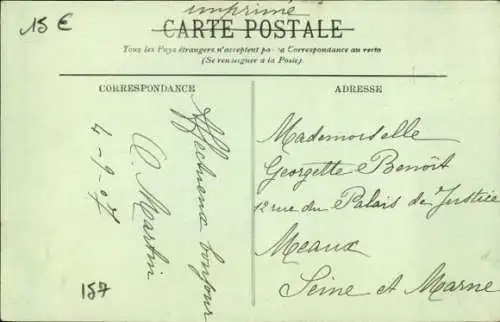 imprimé
15 €
CARTE POSTALE
Tous les Pays étrangers n'acceptent pas la Correspondance au recto
(Se renseigner à la Poste).
CORRESPONDANCE
Affectueux bonjour
A. Martin
4-9-07
157
ADRESSE
Mademoiselle
Georgette Benoît
12 rue du Palais de Justice
Meaux
Seine et Marne